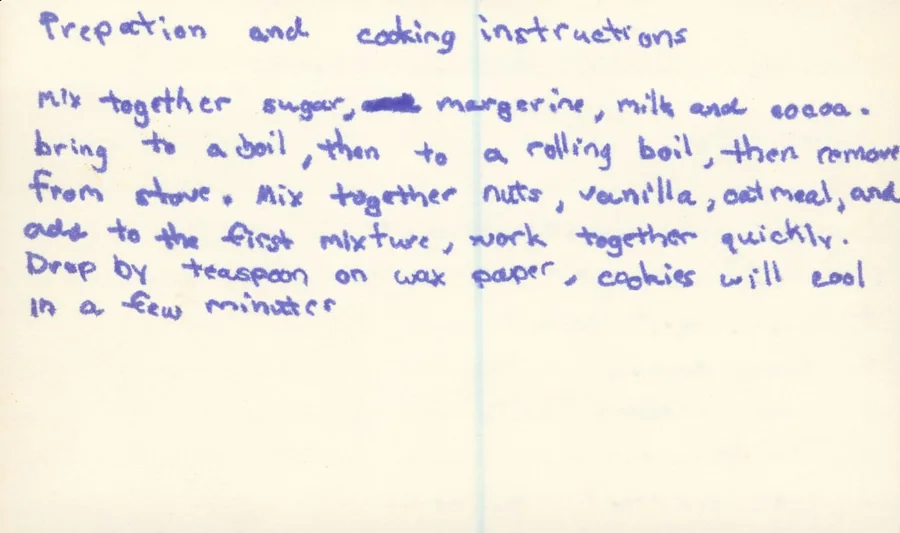 Prepation and cooking instructions
Mix together sugar, margerine, milk and cocoa.
bring to a boil, then to a rolling boil, then remove
from stove. Mix together nuts, vanilla, oatmeal, and
add to the first mixture, work together quickly.
Drop by teaspoon on wax paper, cookies will cool
in a few minutes